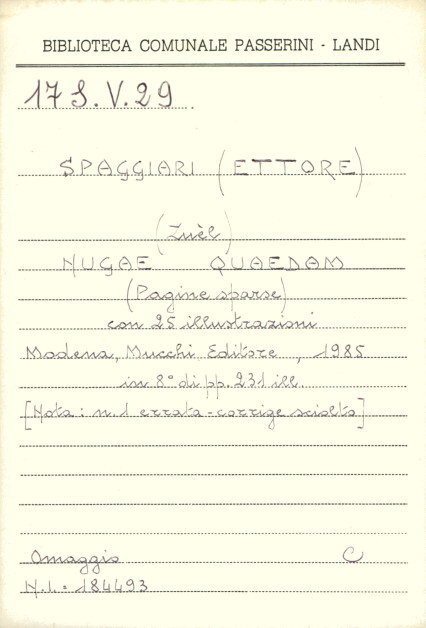 BIBLIOTECA COMUNALE PASSERINI - LANDI
17 S. V. 29
SPAGGIARI (ETTORE)
(Zuèl)
NUGAE QUAEDAM
(Pagine sparse)
con 25 illustrazioni
Modena, Mucchi Editore, 1985
in 8° di pp. 231 ill.
[Nota: n. 1 errata-corrige sciolto]
Omaggio C
N.I. = 184493